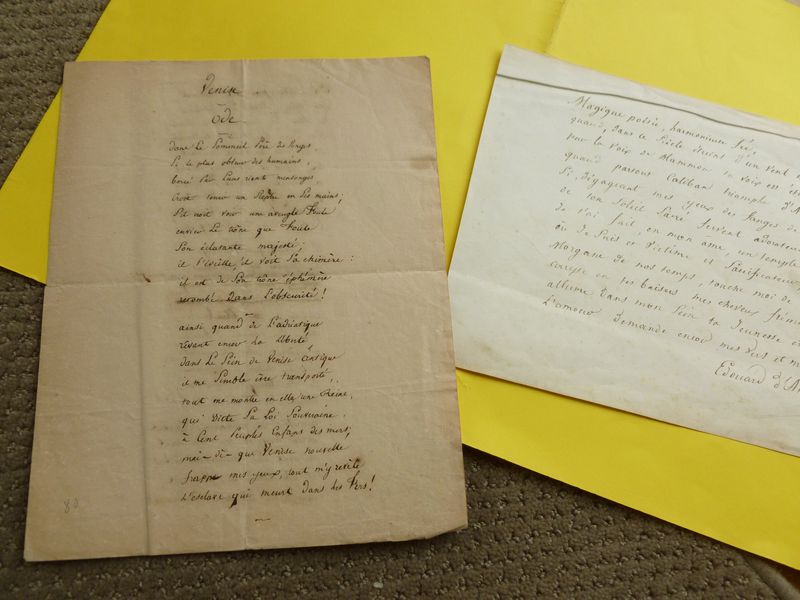 Venise
Ode
dans le Sommeil Père des Songes
Si le plus obscur des humains,
bercé par leurs rians mensonges
Croit tenir un Sceptre en Ses mains;
S'il croit voir une aveugle foule
envier le trône que foule
Son éclatante majesté;
il S'éveille, il voit Sa chimère:
il est de Son trône éphémère
retombé Dans l'obscurité!
ainsi quand de L'adriatique
rêvant encor la liberté
dans Le Sein de Venise antique
il me Semble être transporté,
tout me montre en elle une Reine,
qui dicte Sa Loi Souveraine
à Cent Peuples Enfans des mers;
mais dès que Venise nouvelle
frappe mes yeux, tout m'y révèle
L'esclave qui meurt dans les fers!
80
Magique poésie, harmonieuse fée,
quand, dans le Siècle d'un vent
pour la voix de Mammon ta voix est
quand partout Caliban triomphe
Si, dégageant mes yeux des langes de
de ton Soleil Sacré fervent adorateur
Je t'ai fait, en mon ame, un temple
où Je Suis et Victime et Sacrificateur
Morgane de nos temps, touche moi de
caresse en tes baisers mes cheveux
allume dans mon Sein ta Jeunesse
L'amour demande encor mes vers et
Edouard